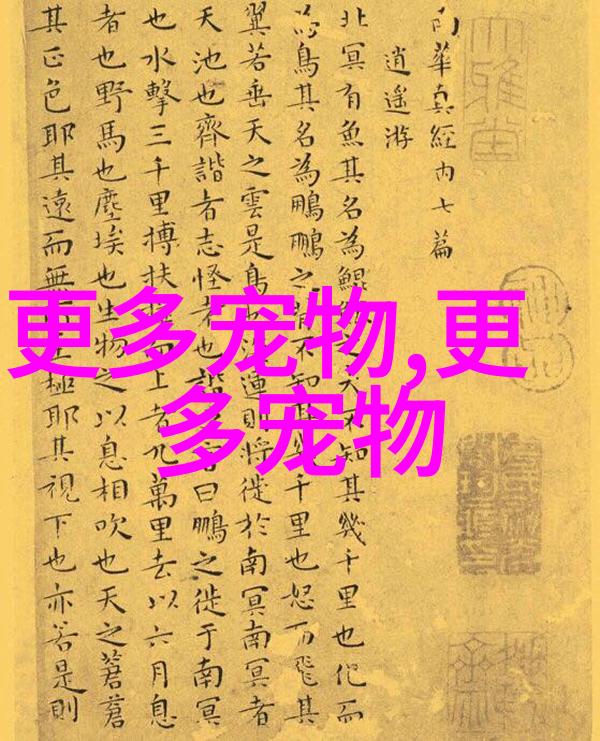 南華真經内七篇
逍遥游
北冥有魚其名為鯤鯤之大不知其幾千里也化而
為鳥其名為鵬鵬之背不知其幾千里也怒而飛其
翼若垂天之雲是鳥也海運則將徙於南冥南冥者
天池也齊諧者志怪者也諧之言曰鵬之徙于南冥
也水擊三千里搏扶搖而上者九萬里去以六月息
者也野馬也塵埃也生物之以息相吹也天之蒼蒼
其正色耶其遠而無所至極耶其視下也亦若是則
更多宠物,更
多宠物